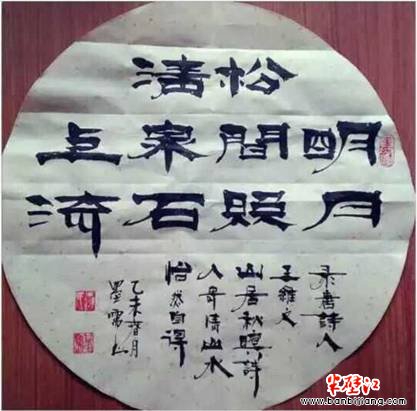 明月
松間照
清泉石
上流
录唐詩人
王維之
山居秋暝詩
人寄情山水
怡然自得
乙未春月
墨
半壁江
www.banbijiang.com